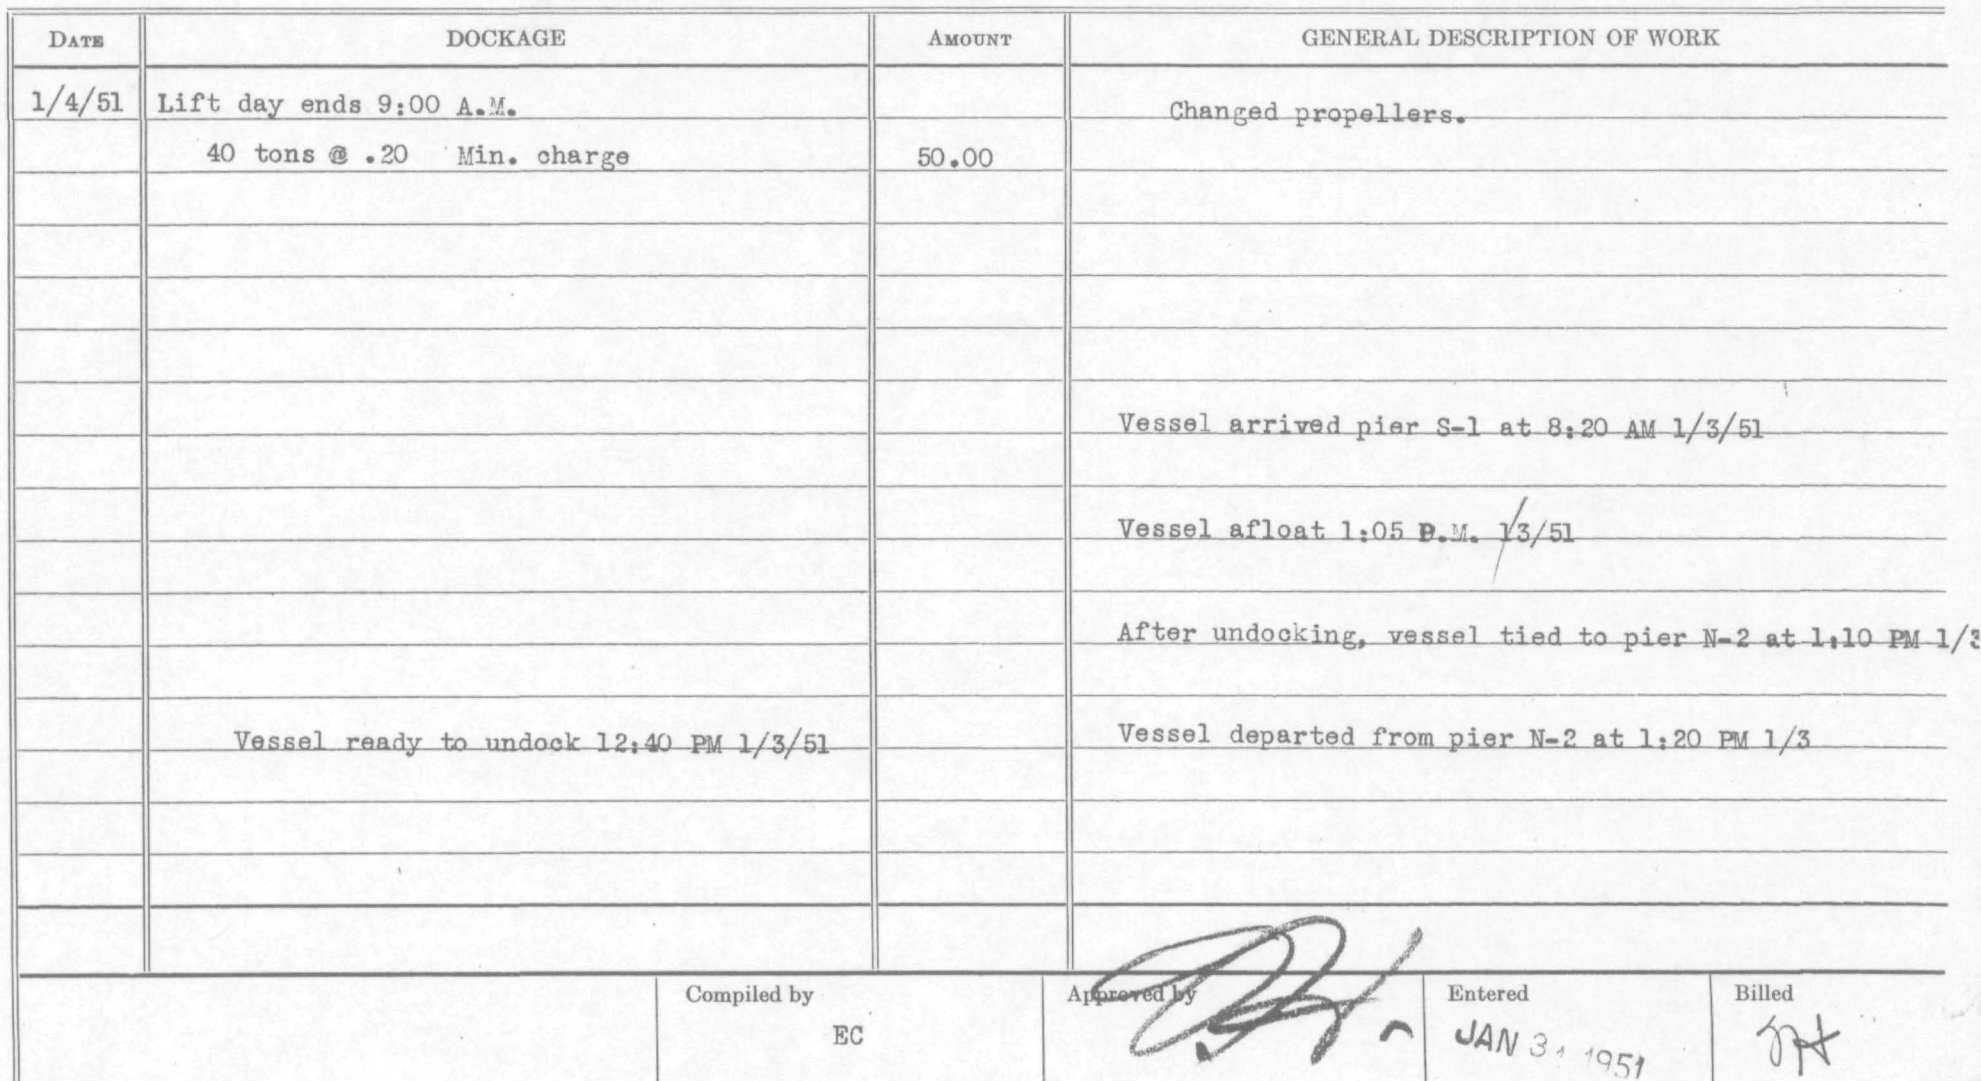 DATE DOCKAGE AMOUNT GENERAL DESCRIPTION OF WORK
1/4/51 Lift day ends 9:00 A.M.
Changed propellers.
40 tons @ .20 Min. charge 50.00
Vessel arrived pier S-1 at 8:20 AM 1/3/51
Vessel afloat 1:05 P.M. 1/3/51
After undocking, vessel tied to pier N-2 at 1:10 PM 1/3
Vessel ready to undock 12:40 PM 1/3/51
Vessel departed from pier N-2 at 1:20 PM 1/3
Compiled by Approved by Entered Billed
EC
JAN 31 1951